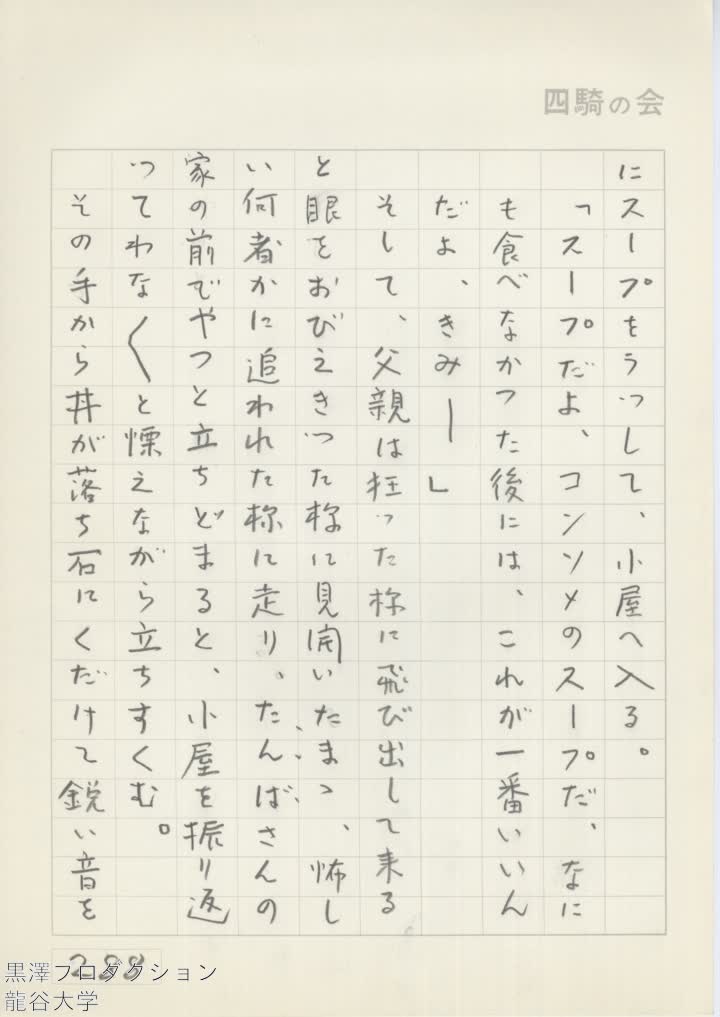 四騎の会
にスープをうつして、小屋へ入る。
「スープだよ、コンソメのスープだ、なに
も食べなかつた後には、これが一番いいん
だよ、きみ―」
そして、父親は狂った様に飛び出して来る
と眼をおびえきった様に見開いたまゝ、怖し
い何者かに追われた様に走り、たんばさんの
家の前でやつと立ちどまると、小屋を振り返
ってわな〱と慄えながら立ちすくむ。
その手から丼が落ち石にくだけて鋭い音を
288
黒澤プロダクション
龍谷大学